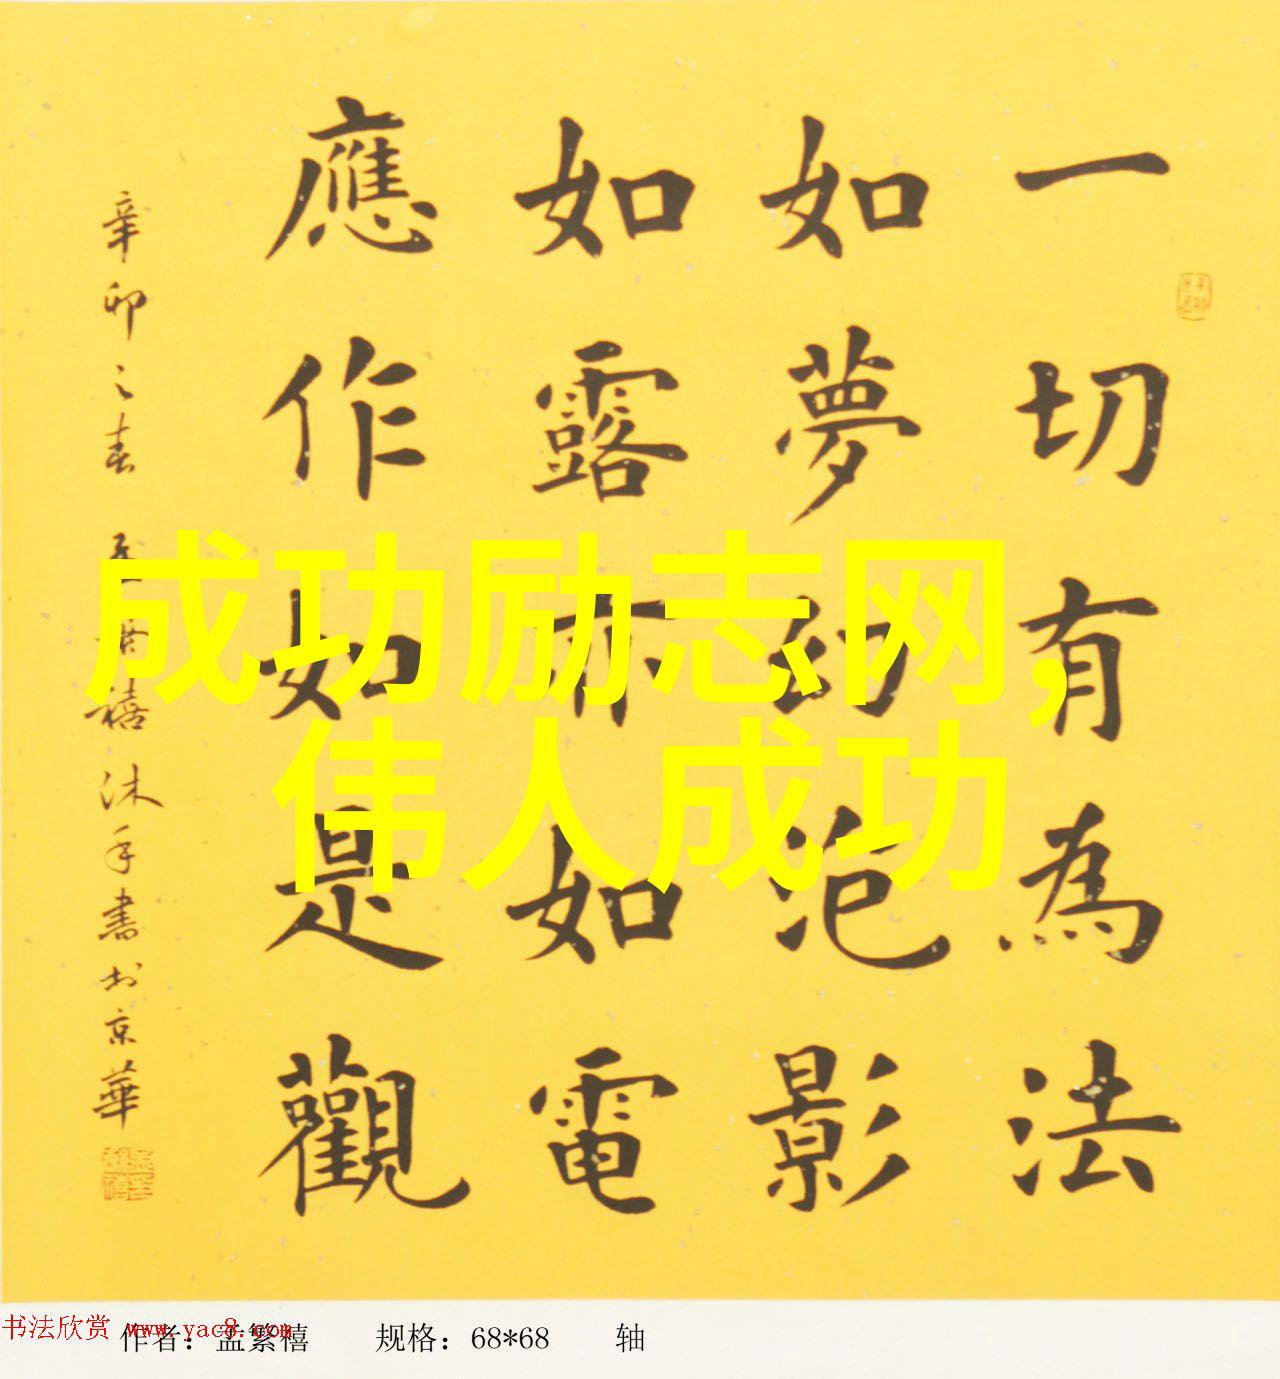 一切有為法
如夢幻泡影
如露亦如電
應作如是觀
辛卯之春 孟繁禧沐手書於京華
成功励志网，
伟人成功
书法欣赏 www.yac8.com
作者：孟繁禧 规格：68*68 轴